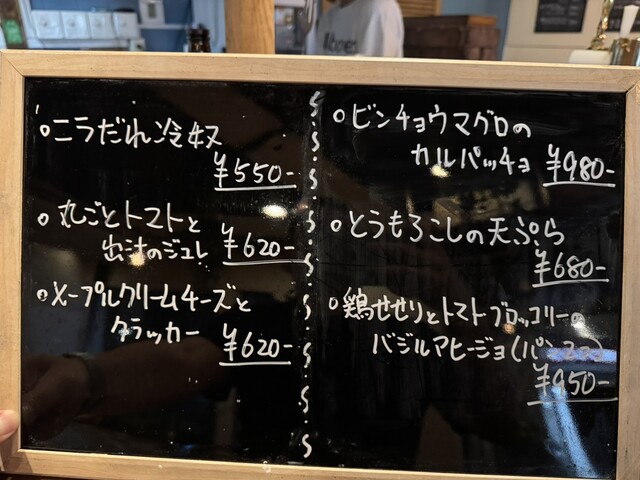 ニラだれ冷奴
¥550-
丸ごとトマトと
出汁のジュレ ¥620-
メープルクリームチーズと
クラッカー ¥620-
ビンチョウマグロの
カルパッチョ ¥980-
とうもろこしの天ぷら
¥680-
鶏せせりとトマトブロッコリーの
バジルアヒージョ(パン
¥950-